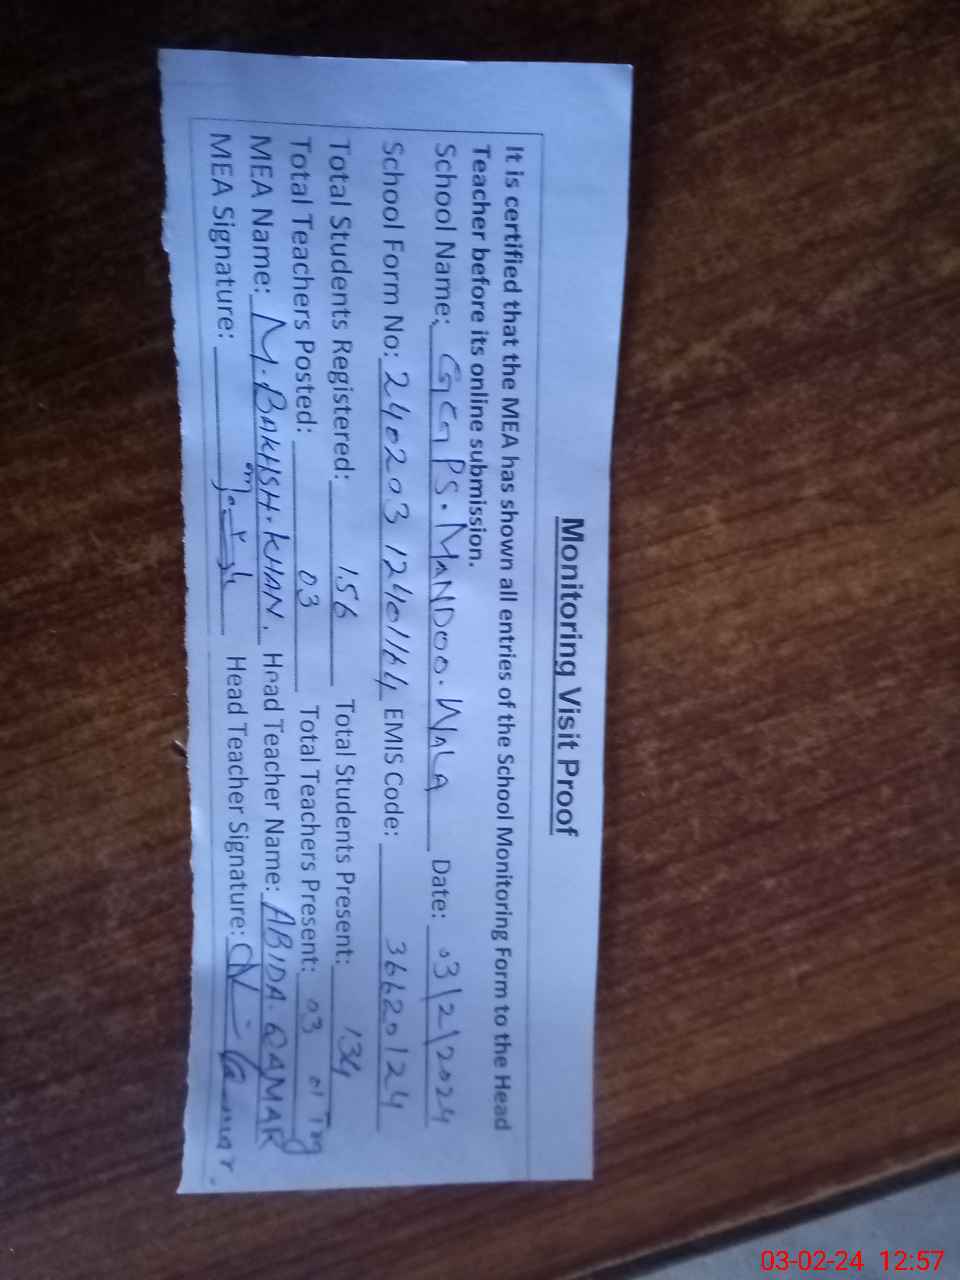 Monitoring Visit Proof
It is certified that the MEA has shown all entries of the School Monitoring Form to the Head
Teacher before its online submission.
School Name: GGPS. MANDOO. WALA Date: 03/2/2024
School Form No: 24020312401164 EMIS Code: 36620124
Total Students Registered: 156 Total Students Present: 134
Total Teachers Posted: 03 Total Teachers Present: 03 01 Trg
MEA Name: M. BAKHSH. KHAN. Head Teacher Name: ABIDA. QAMAR
MEA Signature: Head Teacher Signature:
03-02-24 12:57